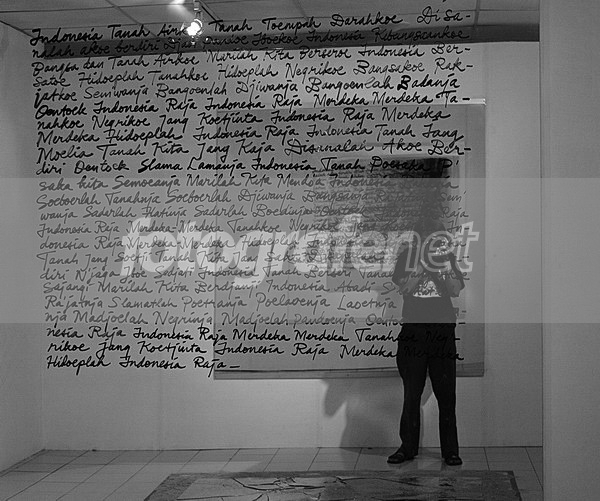 Indonesia Tanah Airkoe Tanah Toempah Darahkoe Di Sa-
nalah akoe berdiri Djadi Pandoe Iboekoe Indonesia Kebangsaankoe
Bangsa dan Tanah Airkoe Marilah Kita Berseroe Indonesia Ber-
Satoe Hidoeplah Tanahkoe Hidoeplah Negrikoe Bangsakoe Rak-
jatkoe Semwanja Bangoenlah Djiwanja Bangoenlah Badanja
Oentoek Indonesia Raja Indonesia Raja Merdeka Merdeka Ta-
nahkoe Negrikoe Jang Koetjinta Indonesia Raja Merdeka
Merdeka Hidoeplah Indonesia Raja Indonesia Tanah Jang
Moelia Tanah Kita Jang Kaja Disanalah Akoe Ber-
diri Oentoek Slama Lamanja Indonesia Tanah Poesaka P
saka kita Semoeanja Marilah Kita Mendoa Indonesia
Soeboerlah Tanahnja Soeboerlah Djiwanja Bangsanja
wanja Sadarlah Hatinja Sadarlah Boedinja Oentoek Indonesia Raja
Indonesia Raja Merdeka Merdeka Tanahkoe Negrikoe
donesia Raja Merdeka Merdeka Hidoeplah
Tanah Jang Soetji Tanah Kita Jang
diri Njaga Iboe Sedjati Indonesia Tanah Berseri Tanah
Sajangi Marilah Kita Berdjandji Indonesia Abadi
Rajatnja Slamatlah Poetranja Poelaoenja Laoetnja
nja Madjoelah Negrinja Madjoelah Pandoenja Oentoek
nesia Raja Indonesia Raja Merdeka Merdeka Tanahkoe Neg-
rikoe Jang Koetjinta Indonesia Raja Merdeka Merdeka
Hidoeplah Indonesia Raja
fotografer.net